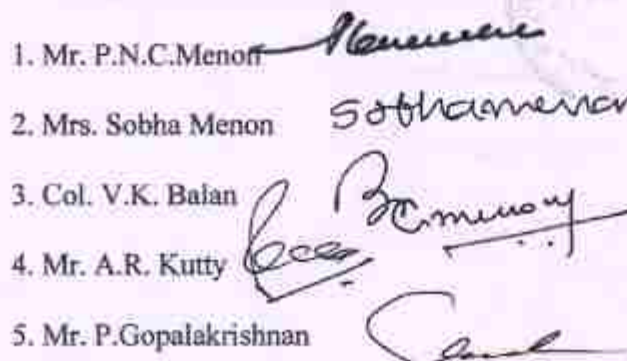 1. Mr. P.N.C.Menon
2. Mrs. Sobha Menon Sobhamenon
3. Col. V.K. Balan
4. Mr. A.R. Kutty
5. Mr. P.Gopalakrishnan